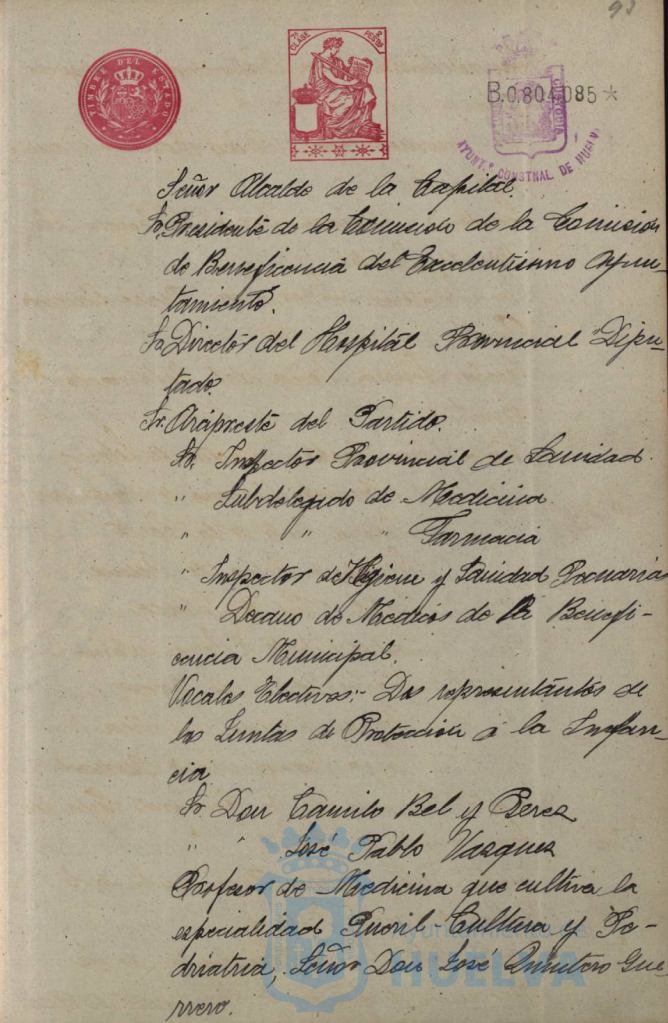 93
TIMBRE DEL ESTADO
7ª CLASE
B.0.804.085*
AYUNT.º CONSTNAL. DE HUELVA
Señor Alcalde de la Capital.
Sr. Presidente de la Comisión de la Comisión
de Beneficencia del Excelentísimo Ayun-
tamiento.
Sr. Director del Hospital Provincial Dipu-
tado.
Sr. Arcipreste del Partido.
Sr. Inspector Provincial de Sanidad.
" Subdelegado de Medicina
" " " Farmacia
" Inspector de Higiene y Sanidad Pecuarias
" Decano de Médicos de la Benefi-
cencia Municipal.
Vocales Electivos:- Dos representantes de
las Juntas de Protección á la Infan-
cia
Sr. Don Camilo Bel y Perez
" " José Pablo Vazquez
Profesor de Medicina que cultiva la
especialidad Pueril-Cultura y Pe-
driatria, Señor Don José Quintero Gue-
rrero.
HUELVA